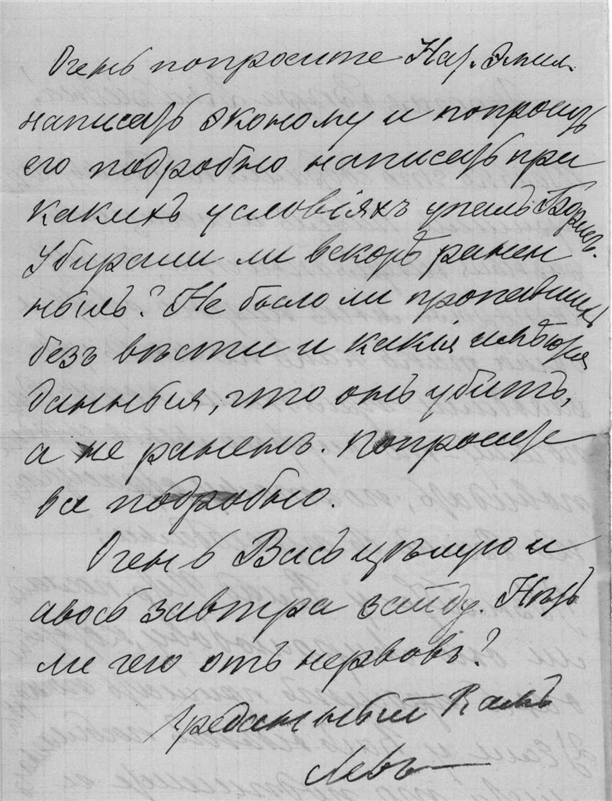 Очень попросите Нар. Эмил.
написать эконому и попросить
его подробно написать при
какихъ условіяхъ упалъ Борисъ.
Убирали ли вскорѣ ранен
ныхъ? Не было ли пропавшихъ
безъ вѣсти и какія имѣются
данныя, что онъ убитъ,
а не раненъ. Попросите
все подробно.
Очень Васъ цѣлую и
авось завтра зайду. Нѣтъ
ли чего отъ нервовъ?
Преданный Вамъ
Левъ